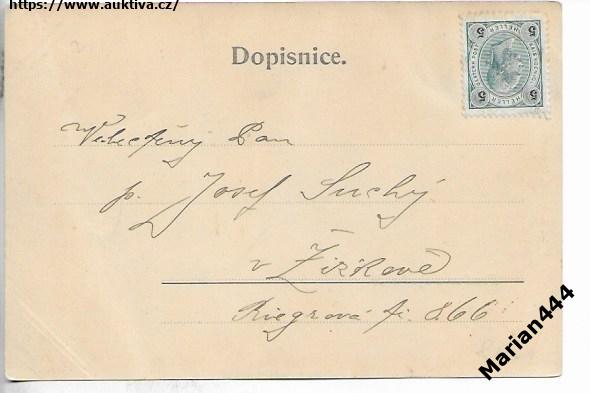 https://www.auktiva.cz/
Dopisnice.
5 HELLER 5
Velectěný Pan
p. Josef Suchý
v Žižkově
Riegrová tř. 866
Marian444